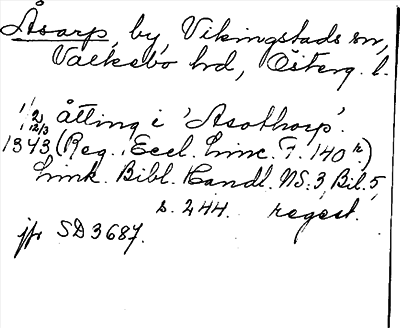 Åsarp, by, Vikingstads sn,
Valkebo hd, Österg. l.
1/2 åtting i 'Asothorp'.
12/3
1343 (Reg. Eccl. Linc. F. 140 r.)
Link. Bibl. Handl. NS. 3, Bil. 5,
s. 244. regest.
jfr SD 3687.